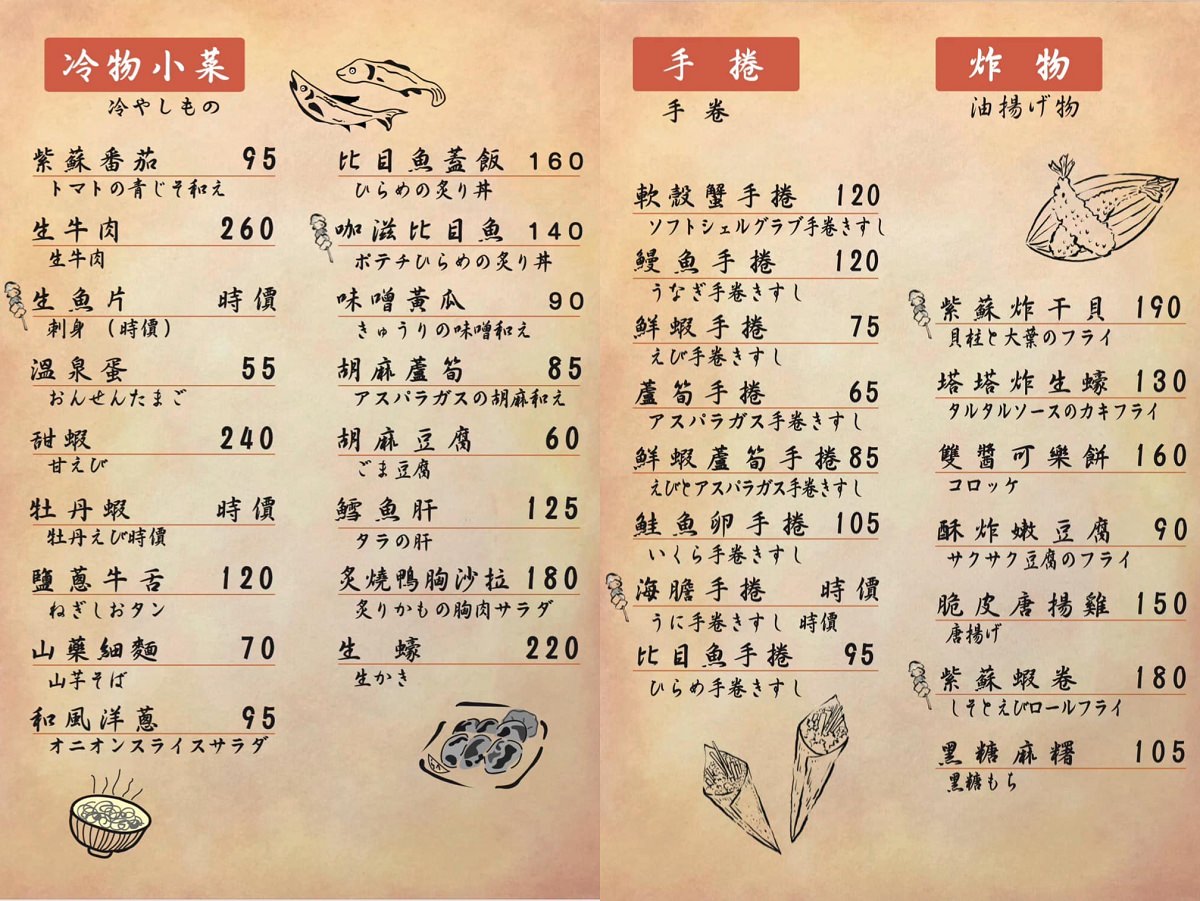 冷物小菜
冷やしもの
紫蘇番茄 95
トマトの青じそ和え
生牛肉 260
生牛肉
生魚片 時價
刺身（時價）
溫泉蛋 55
おんせんたまご
甜蝦 240
甘えび
牡丹蝦 時價
牡丹えび時價
鹽蔥牛舌 120
ねぎしおタン
山藥細麵 70
山芋そば
和風洋蔥 95
オニオンスライスサラダ
比目魚蓋飯 160
ひらめの炙り丼
咖滋比目魚 140
ポテチひらめの炙り丼
味噌黃瓜 90
きゅうりの味噌和え
胡麻蘆筍 85
アスパラガスの胡麻和え
胡麻豆腐 60
ごま豆腐
鱈魚肝 125
タラの肝
炙燒鴨胸沙拉 180
炙りかもの胸肉サラダ
生蠔 220
生かき
手捲
手卷
軟殼蟹手捲 120
ソフトシェルグラブ手卷きすし
鰻魚手捲 120
うなぎ手卷きすし
鮮蝦手捲 75
えび手卷きすし
蘆筍手捲 65
アスパラガス手卷きすし
鮮蝦蘆筍手捲 85
えびとアスパラガス手卷きすし
鮭魚卵手捲 105
いくら手卷きすし
海膽手捲 時價
うに手卷きすし 時價
比目魚手捲 95
ひらめ手卷きすし
炸物
油揚げ物
紫蘇炸干貝 190
貝柱と大葉のフライ
塔塔炸生蠔 130
タルタルソースのカキフライ
雙醬可樂餅 160
コロッケ
酥炸嫩豆腐 90
サクサク豆腐のフライ
脆皮唐揚雞 150
唐揚げ
紫蘇蝦卷 180
しそとえびロールフライ
黑糖麻糬 105
黑糖もち